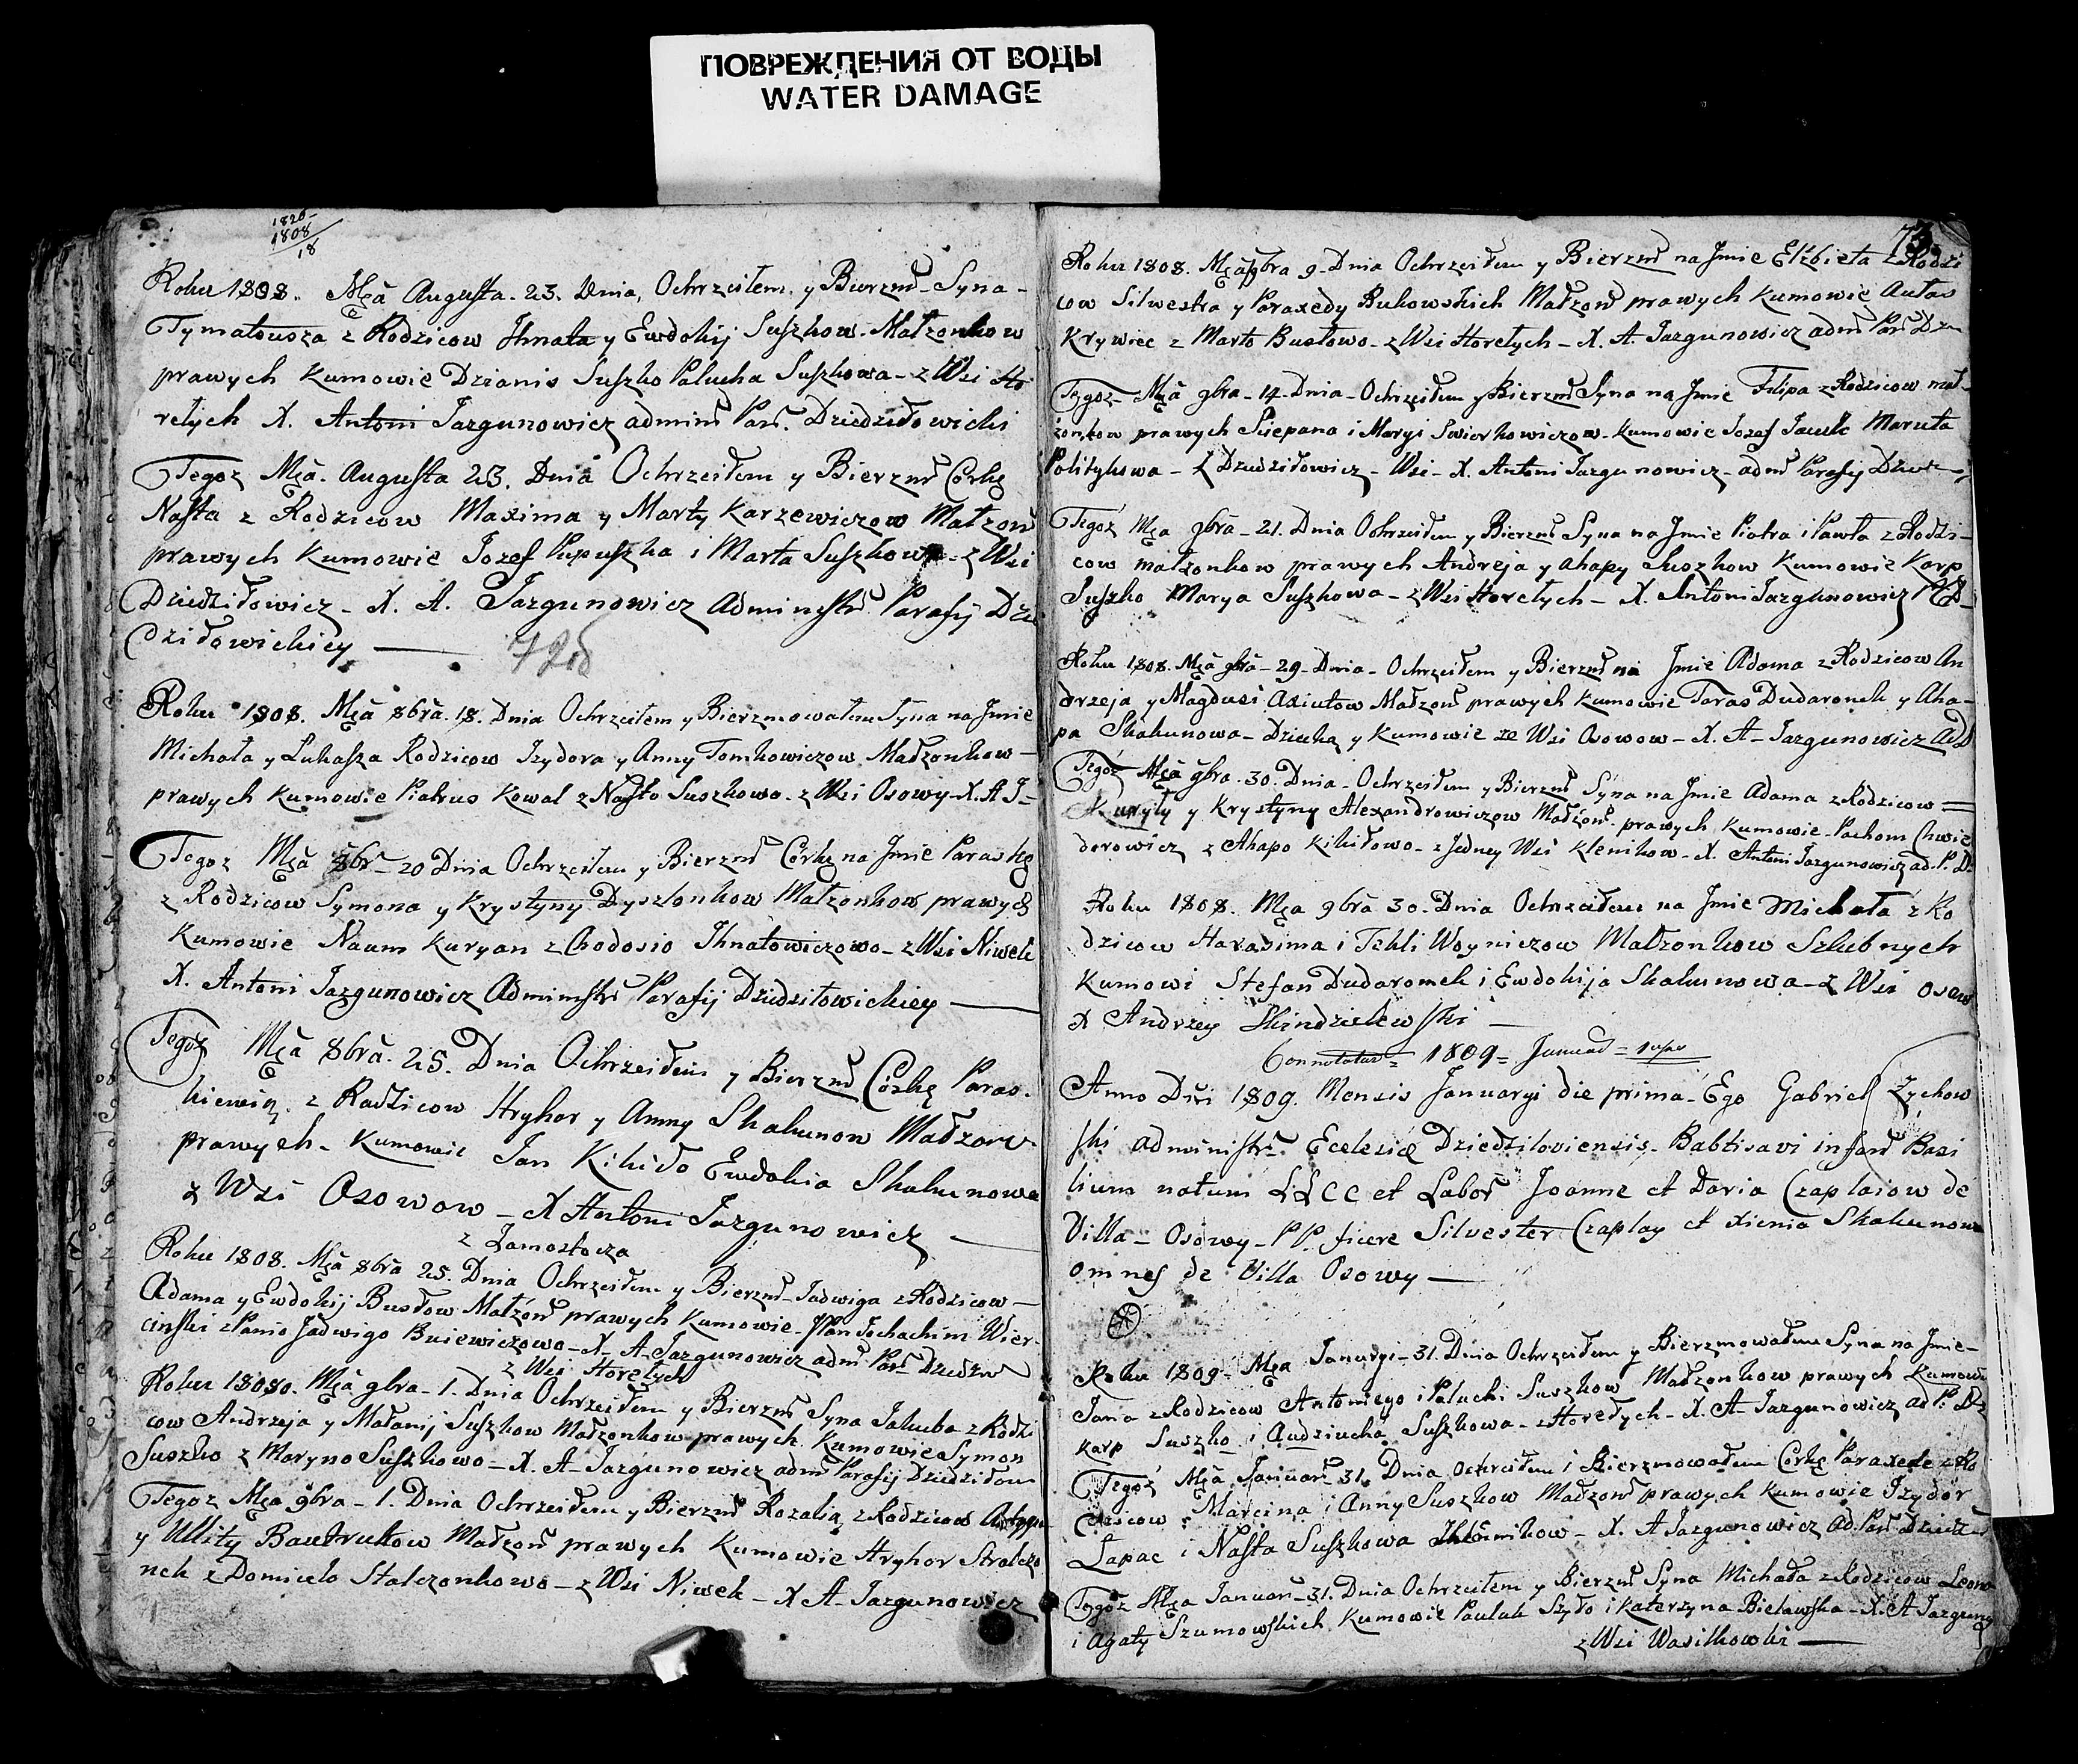 ПОВРЕЖДЕНИЯ ОТ ВОДЫ
WATER DAMAGE
1826-
1808
18
Roku 1808. Mca Augusta. 23. Dnia, Ochrzciłem y Bierzm Syna-
Tymateusza z Rodzicow Ihnata y Ewdokij Suszkow Małzonkow
prawych Kumowie Dzianis Suszko Palucha Suszkowa - z Wsi Ho
rełych X. Antoni Jazgunowicz admin Par. Dziedziłowicki
Tegoż Mca. Augusta 23. Dnia Ochrzciłem y Bierzm Corkę
Nasta z Rodzicow Maxima y Marty Karzewiczow Małzon
prawych Kumowie Jozef Pupuszka i Marta Suszkowa - z Wsi
Dziedziłowicz - X. A. Jazgunowicz Administr Parafij Dzie
dziłowickiey
72об
Roku 1808. Mca 8bra. 18. Dnia Ochrzciłem y Bierzmowałem Syna na Jmie
Michała y Lukasza Rodzicow Izydora y Anny Tomkowiczow Małzonkow -
prawych Kumowie Piatrus Kowal z Nasto Suszkowo - z Wsi Osowy - X. A. J-
Tegoz Mca 8br - 20 Dnia Ochrzciłem y Bierzm Corkę na Jmie Paraskę
z Rodzicow Symona y Krystyny Dyszlonkow Małzonkow prawych
Kumowie Naum Kuryan z Chodosio Ihnatowiczowo - z Wsi Niwek
X. Antoni Jazgunowicz Administr Parafij Dziedziłowickiey
Tegoż Mca 8bra. 25. Dnia Ochrzciłem y Bierzm Corkę Paras-
kiewią z Rodzicow Hryhor y Anny Skakunow Małzon
prawych - Kumowie Jan Kikiło Ewdokia Skakunowa
z Wsi Osowow - X Antoni Jazgunowicz
z Zamostocza
Roku 1808. Mca 8bra 25. Dnia Ochrzciłem y Bierzm - Jadwiga z Rodzicow -
Adama y Ewdokij Busłow Małzon prawych Kumowie - JPan Jochachim Wier-
cinski z Panio Jadwigo Buiewiczowo - X - A - Jazgunowicz adm Par Dziedz
z Wsi Horełych
Roku 18080. Mca 9bra - 1. Dnia Ochrzciłem y Bierzm Syna Jakuba z Rodzi
cow Andrzeja y Małanij Suszkow Małzonkow prawych Kumowie Symon
Suszko z Maryno Suszkowo - X. A - Jazgunowicz adm Parafij Dziedziłow
Tegoz Mca 9bra - 1. Dnia Ochrzciłem y Bierzm Rozalią z Rodzicow
y Ullity Bautrukow Małzon prawych Kumowie Hryhor Stralczo
nek z Domicelo Stalczonkowo - z Wsi Niwek - X A - Jazgunowicz
73
Roku 1808. Mca 9bra 9 - Dnia Ochrzciłem y Bierzm na Jmie Elżbieta z Rodzi
cow Silwestra y Paraxedy Bukowskich Małzon prawych Kumowie Antos
Krywiec z Marto Busłowo - z Wsi Horełych - X. A. Jazgunowicz adm Par Dzie
Tegoz - Mca 9bra - 14 - Dnia - Ochrzciłem y Bierzm Syna na Jmie Filipa z Rodzicow mał-
żonkow prawych Sciepana i Maryi Swierkowiczow - Kumowie Jozef Jacuk Maruta
Politykowa - z Dziedziłowicz - Wsi - X. Antoni Jazgunowicz - adm Parafij Dziedz
Tegoż Mca 9bra - 21. Dnia Ochrzciłem y Bierzm Syna na Jmie Piotra i Pawła z Rodzi-
cow małzonkow prawych Andreja y Ahapy Suszkow Kumowie Karp
Suszko Marya Suszkowa - z Wsi Horełych - X. Antoni Jazgunowicz
Roku 1808. Mca 9bra - 29 - Dnia - Ochrzciłem y Bierzm na Jmie Adama z Rodzicow An
drzeja y Magdusi Axiutow Małzon prawych Kumowie Taras Dudaronek y Aha-
pa Skakunowa - Dziecko y Kumowie ze Wsi Osowow - X. A - Jazgunowicz AD
Tegoż Mca 9bra. 30. Dnia - Ochrzciłem y Bierzm Syna na Jmie Adama z Rodzicow
Kuryły y Krystyny Alexandrowiczow Małzon - prawych Kumowie - Pachom Chwie
dorowicz z Ahapo Kikiłowo - z Jedney Wsi Klenikow - X. Antoni Jazgunowicz ad. P. D.
Roku 1808. Mca 9bra 30 - Dnia Ochrzciłem na Jmie Michała z Ro
dzicow Harasima i Tekli Woyniczow Małzonkow Szlubnych
Kumowi Stefan Dudaromek i Ewdokija Skakunowa - z Wsi Osow
X Andrzey Skindzielewski
Connotatur = 1809 = Januar = 1
Anno Dni 1809. Mensis Januaryi die prima - Ego Gabriel Zychow
ski administr Ecelesiæ Dziedziloviensis - Babtisavi infan Basi
lium natum LLCC et Labor Joanne et Daria Czaplaiow de
Villa - Osowy - PP. fuere Silvester Czaplay et Xienia Skakunowa
omnes de Villa Osowy
Roku 1809 - Mca Januryi - 31. Dnia Ochrzciłem y Bierzmowałem Syna na Jmie -
Jana z Rodzicow Antoniego i Paluchi Suszkow Małzonkow prawych Kumowi
Karp Suszko i Audziucha Suszkowa - z Horełych - X. A - Jazgunowicz ad P. Dz
Tegoż Mca Januar 31. Dnia Ochrciłem i Bierzmowałem Corkę Paraxede z Ro
dzicow Marcina i Anny Suszkow Małzon prawych Kumowie Izydor
Łapac i Nasta Suszkowa - X. A Jazgunowicz ad Par Dziedz
Tegoż Mca Januar - 31. Dnia Ochrzciłem y Bierzm Syna Michała z Rodzicow Leona
i Agaty Szumowskich Kumowie Pauluk Szyło i Katerzyna Bielawska - X. A Jazguno
z Wsi Wasilkowki